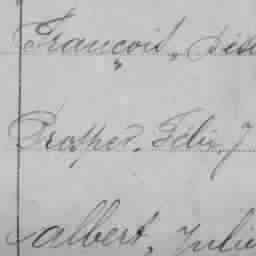 François, Dés
Prosper, Félix, J
Albert, Julie